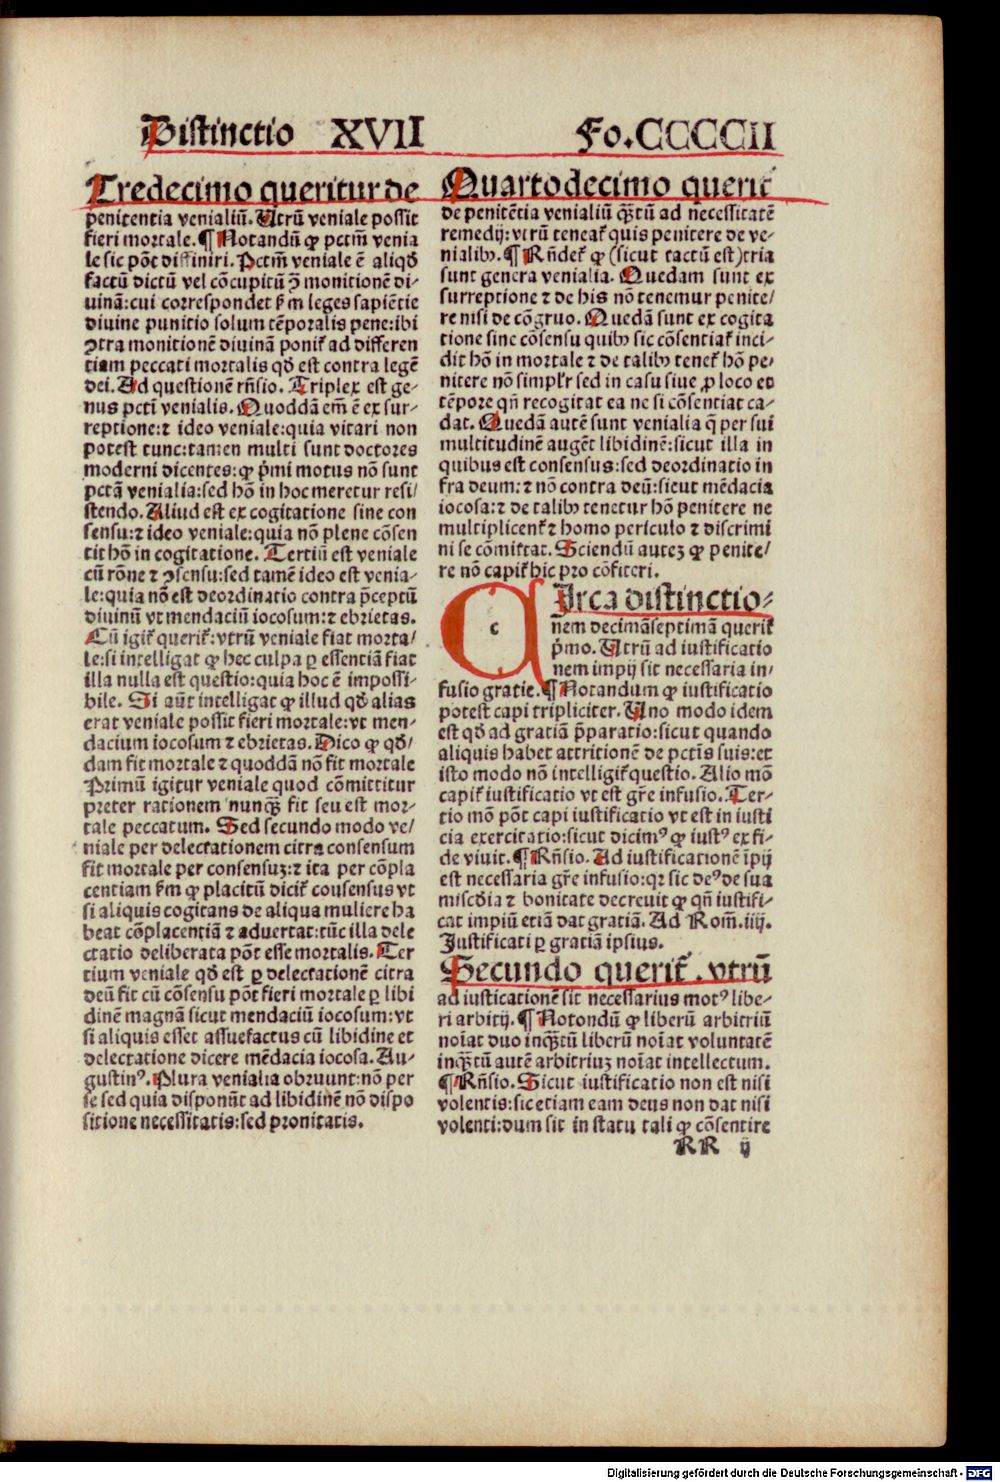 Distinctio XVII Fo.CCCCCII
Tredecimo queritur de
penitentia venialiũ. Utrũ veniale possit
fieri mortale. ¶ Notandũ ꝙ pctm̃ venia
le sic põt diffiniri. Pctm̃ veniale ẽ aliqd̃
factũ dictũ vel cõcupitũ ꝯ̃ monitionẽ di-
uinã: cui correspondet ẜm leges sapiẽtie
diuine punitio solum tẽporalis pene: ibi
ꝯtra monitionẽ diuinã poniť ad differen
tiam peccati mortalis qd̃ est contra legẽ
dei. Ad questionẽ rñsio. Triplex est ge-
nus pcti venialis. Quoddã em̃ ẽ ex sur-
reptione: ⁊ ideo veniale: quia vitari non
potest tunc: tamen multi sunt doctores
moderni dicentes: ꝙ p̃mi motus nõ sunt
pctã venialia: sed hõ in hoc meretur resi/
stendo. Aliud est ex cogitatione sine con
sensu: ⁊ ideo veniale: quia nõ plene cõsen
tit hõ in cogitatione. Tertiũ est veniale
cũ rõne ⁊ ꝯsensu: sed tamẽ ideo est venia-
le: quia nõ est deordinatio contra p̃ceptũ
diuinũ vt mendaciũ iocosum: ⁊ ebrietas.
Cũ igiť queriť: vtrũ veniale fiat morta/
le: si intelligat ꝙ hec culpa ꝑ essentiã fiat
illa nulla est questio: quia hoc ẽ impossi-
bile. Si aũt intelligat ꝙ illud qd̃ alias
erat veniale possit fieri mortale: vt men-
dacium iocosum ⁊ ebrietas. Dico ꝙ qd̃/
dam fit mortale ⁊ quoddã nõ fit mortale
Primũ igitur veniale quod cõmittitur
preter rationem nunqᷓ fit seu est mor-
tale peccatum. Sed secundo modo ve/
niale per delectationem citra consensum
fit mortale per consensuꝫ: ⁊ ita per cõpla
centiam ẜm ꝙ placitũ diciť consensus vt
si aliquis cogitans de aliqua muliere ha
beat cõplacentiã ⁊ aduertat: tũc illa dele
ctatio deliberata põt esse mortalis. Ter
tium veniale qd̃ est ꝑ delectationẽ citra
deũ fit cũ cõsensu põt fieri mortale ꝑ libi
dinẽ magnã sicut mendaciũ iocosum: vt
si aliquis esset assuefactus cũ libidine et
delectatione dicere mẽdacia iocosa. Au-
gustinꝰ. Plura venialia obruunt: nõ per
se sed quia disponũt ad libidinẽ nõ dispo
sitione necessitatis: sed pronitatis.
Quartodecimo queriť
de penitẽtia venialiũ qᷓtũ ad necessitatẽ
remedij: vtrũ teneať quis penitere de ve-
nialibꝰ. ¶ Rñdeť ꝙ (sicut tactũ est) tria
sunt genera venialia. Quedam sunt ex
surreptione ⁊ de his nõ tenemur penite/
re nisi de cõgruo. Quedã sunt ex cogita
tione sine cõsensu quibꝰ sic cõsentiať inci-
dit hõ in mortale ⁊ de talibꝰ teneť hõ pe-
nitere nõ simplr̃ sed in casu siue ꝓ loco et
tẽpore qñ recogitat ea ne si cõsentiat ca-
dat. Quedã autẽ sunt venialia q̃ per sui
multitudinẽ augẽt libidinẽ: sicut illa in
quibus est consensus: sed deordinatio in
fra deum: ⁊ nõ contra deũ: sicut mẽdacia
iocosa: ⁊ de talibꝰ tenetur hõ penitere ne
multiplicenť ⁊ homo periculo ⁊ discrimi
ni se cõmittat. Sciendũ auteꝫ ꝙ penite/
re nõ capiť hic pro cõfiteri.
CIrca distinctio-
nem decimãseptimã queriť
p̃mo. Utrũ ad iustificatio
nem impij sit necessaria in-
fusio gratie. ¶ Notandum ꝙ iustificatio
potest capi tripliciter. Uno modo idem
est qd̃ ad gratiã p̃paratio: sicut quando
aliquis habet attritionẽ de pctis̃ suis: et
isto modo nõ intelligiť questio. Alio mõ
capiť iustificatio vt est gr̃e infusio. Ter-
tio mõ põt capi iustificatio vt est in iusti
cia exercitatio: sicut dicimꝰ ꝙ iustꝰ ex fi-
de viuit. ¶ Rñsio. Ad iustificationẽ ĩpij
est necessaria gr̃e infusio: qꝛ sic deꝰ de sua
miscd̃ia ⁊ bonitate decreuit ꝙ qñ iustifi-
cat impiũ etiã dat gratiã. Ad Rom̃. iiij.
Justificati ꝑ gratiã ipsius.
Secundo queriť. vtrũ
ad iusticationẽ sit necessarius motꝰ libe-
ri arbitij. ¶ Notondũ ꝙ liberũ arbitriũ
noĩat duo inqᷓtũ liberũ noĩat voluntatẽ
inqᷓtũ autẽ arbitriuꝫ noĩat intellectum.
¶ Rñsio. Sicut iustificatio non est nisi
volentis: sic etiam eam deus non dat nisi
volenti: dum sit in statu tali ꝙ cõsentire
RR ij
Digitalisierung gefördert durch die Deutsche Forschungsgemeinschaft - DFG